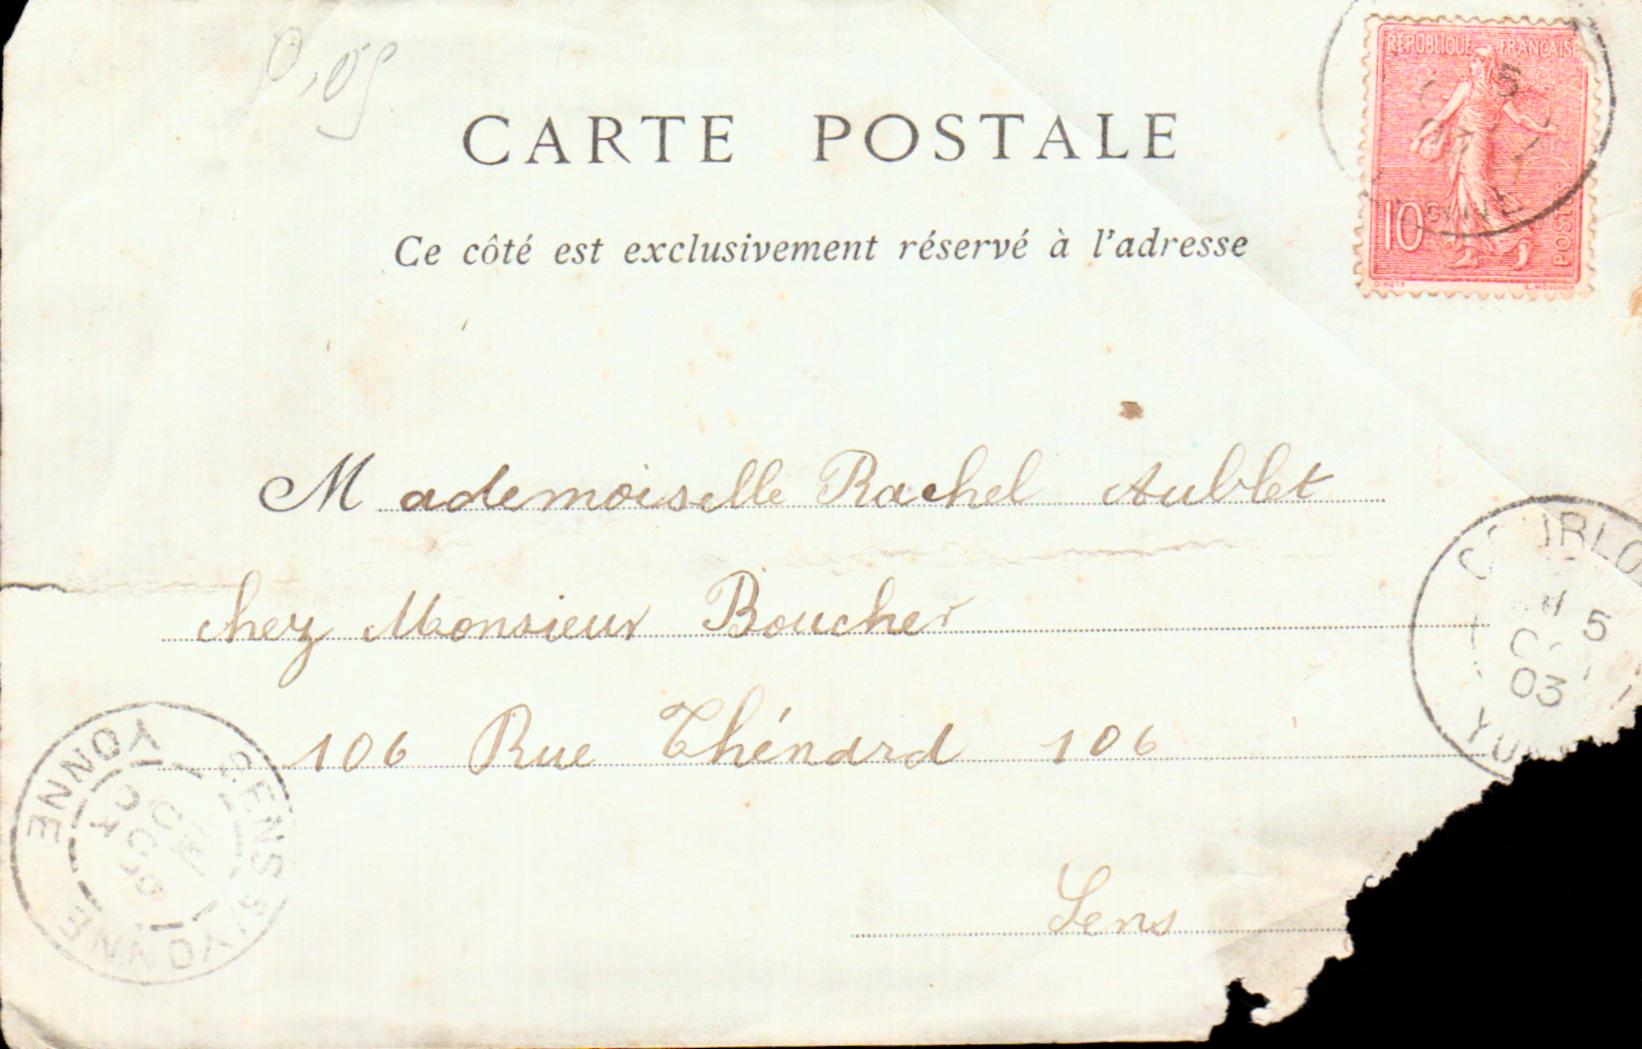 0,05
RÉPUBLIQUE FRANÇAISE
10 POSTES
CARTE POSTALE
Ce côté est exclusivement réservé à l'adresse
Mademoiselle Rachel Aublet
chez Monsieur Boucher
106 Rue Thénard 106
Sens
5
03
SENS S/YONNE
YONNE